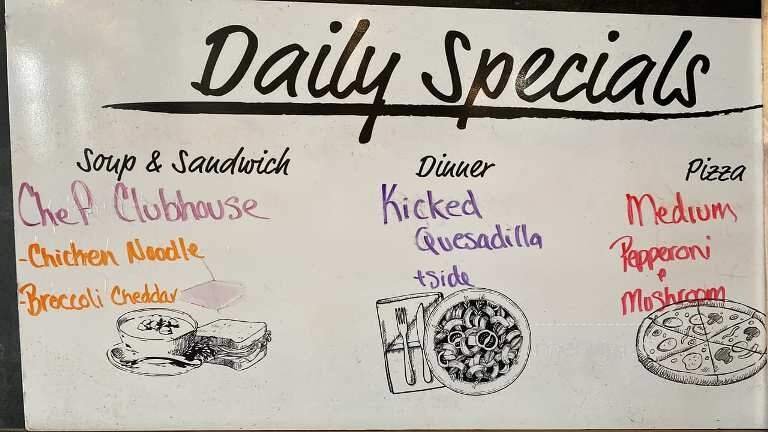 Daily Specials
Soup & Sandwich
Chef Clubhouse
-Chicken Noodle
-Broccoli Cheddar
Dinner
Kicked
Quesadilla
+side
Pizza
Medium
Pepperoni
&
Mushroom